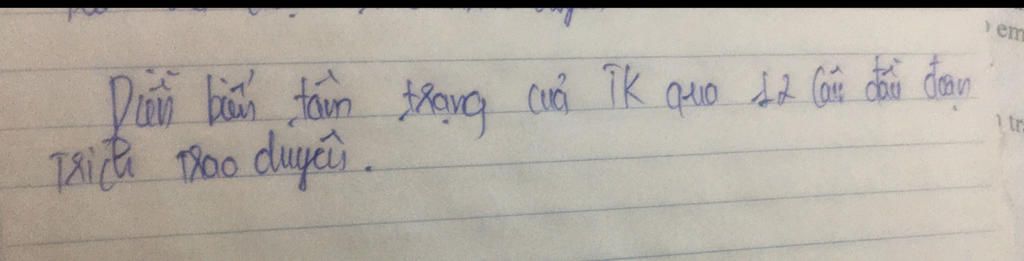 em
Diễn biến tâm trạng của TK qua 12 câu đầu đoạn
tr
Trích Trao duyên.